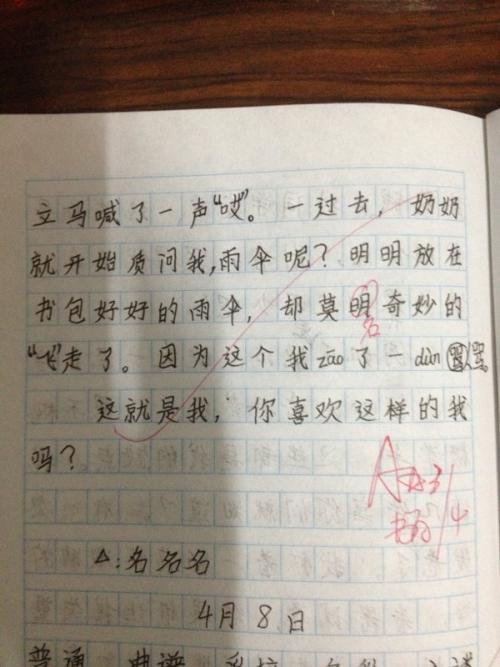 立马喊了一声“哎”。一过去，奶奶
就开始质问我，雨伞呢？明明放在
书包好好的雨伞，却莫明奇妙的
名
“飞”走了。因为这个我zāo了一dùn骂。
这就是我，你喜欢这样的我
吗？
△：名名名
4月8日
普通